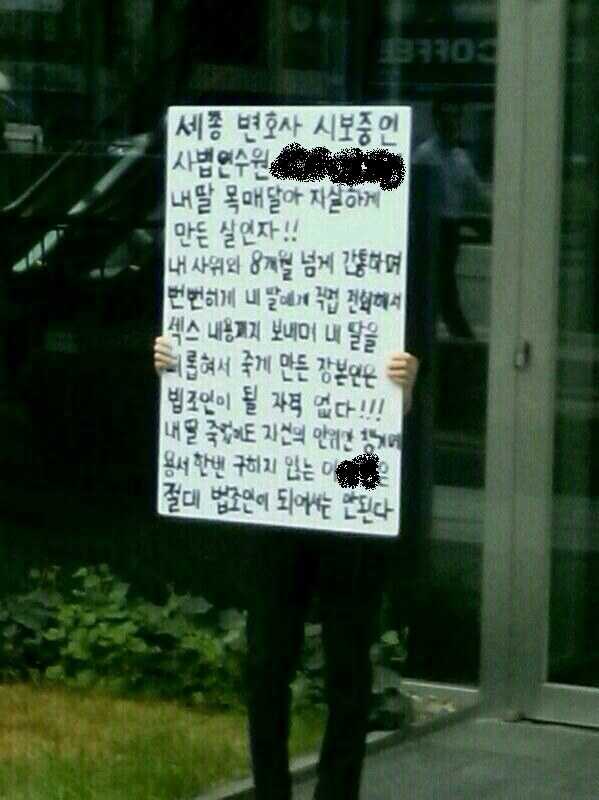 COFFEE
세종 변호사 시보중인
사법연수원
내딸 목매달아 자살하게
만든 살인자!!
내 사위와 8개월 넘게 간통하며
뻔뻔하게 내 딸에게 직접 전화해서
섹스 내용까지 보내며 내 딸을
괴롭혀서 죽게 만든 장본인은
법조인이 될 자격 없다!!!
내 딸 죽었어도 자신의 안위만 챙기며
용서 한번 구하지 않는 이 은
절대 법조인이 되어서는 안된다